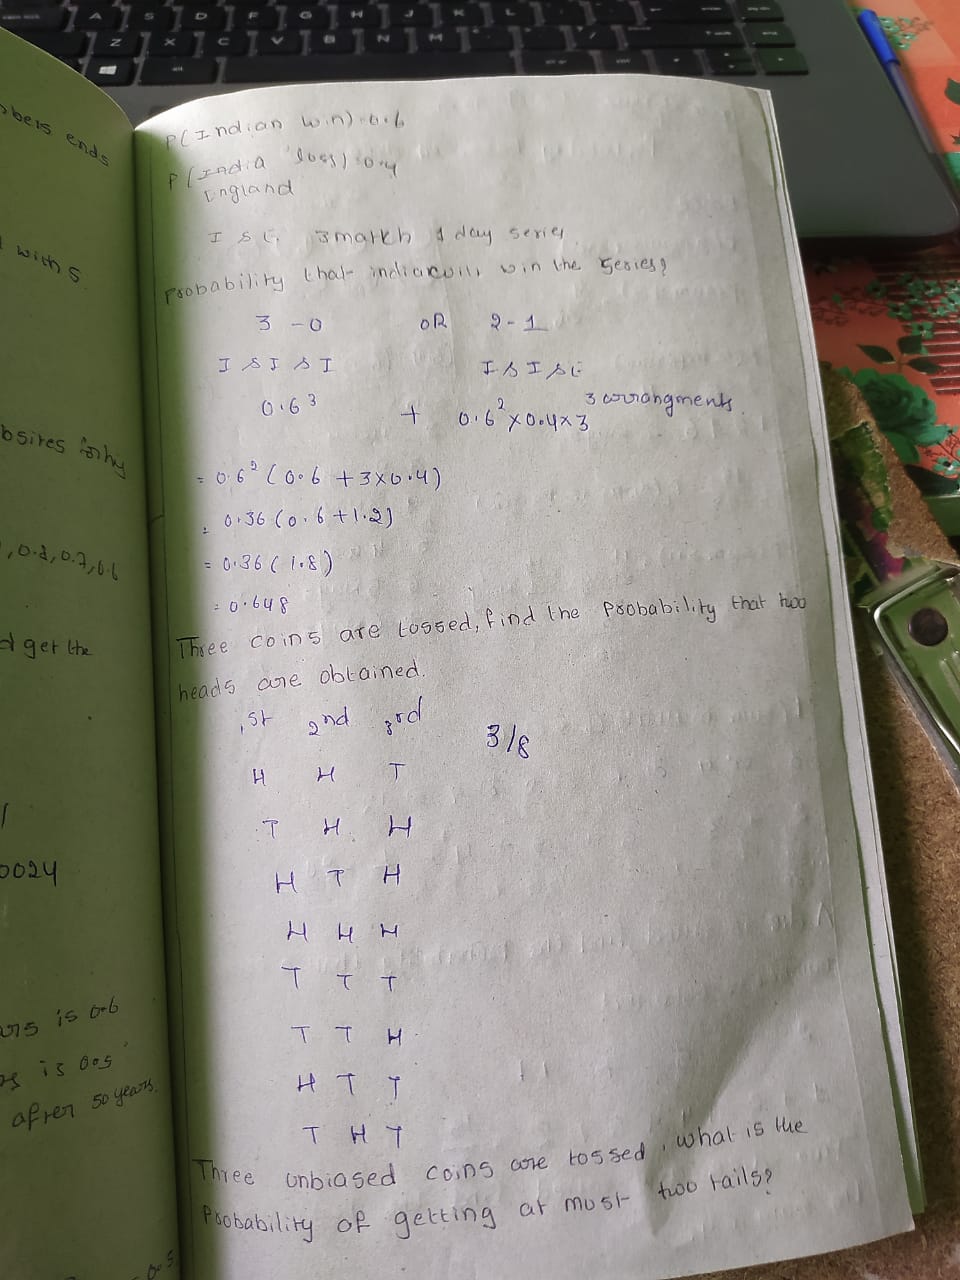 bers ends
with 5
0.7, 0.6
d get the
0024
is 0.6
is 0.05
after 50 years.
P(Indian win) = 0.6
P(India loss) = 0.4
England
3 match 1 day series
Probability that india will win the series?
3 - 0 OR 2 - 1
I & I & I I & I & E
0.6³ + 0.6² x 0.4 x 3 3 arrangments
= 0.6² (0.6 + 3x0.4)
= 0.36 (0.6 + 1.2)
= 0.36 (1.8)
= 0.648
Three coins are tossed, find the probability that two
heads are obtained.
1st 2nd 3rd
3/8
H H T
T H H
H T H
H H H
T T T
T T H
H T T
T H T
Three unbiased coins are tossed, what is the
Probability of getting at most two tails?